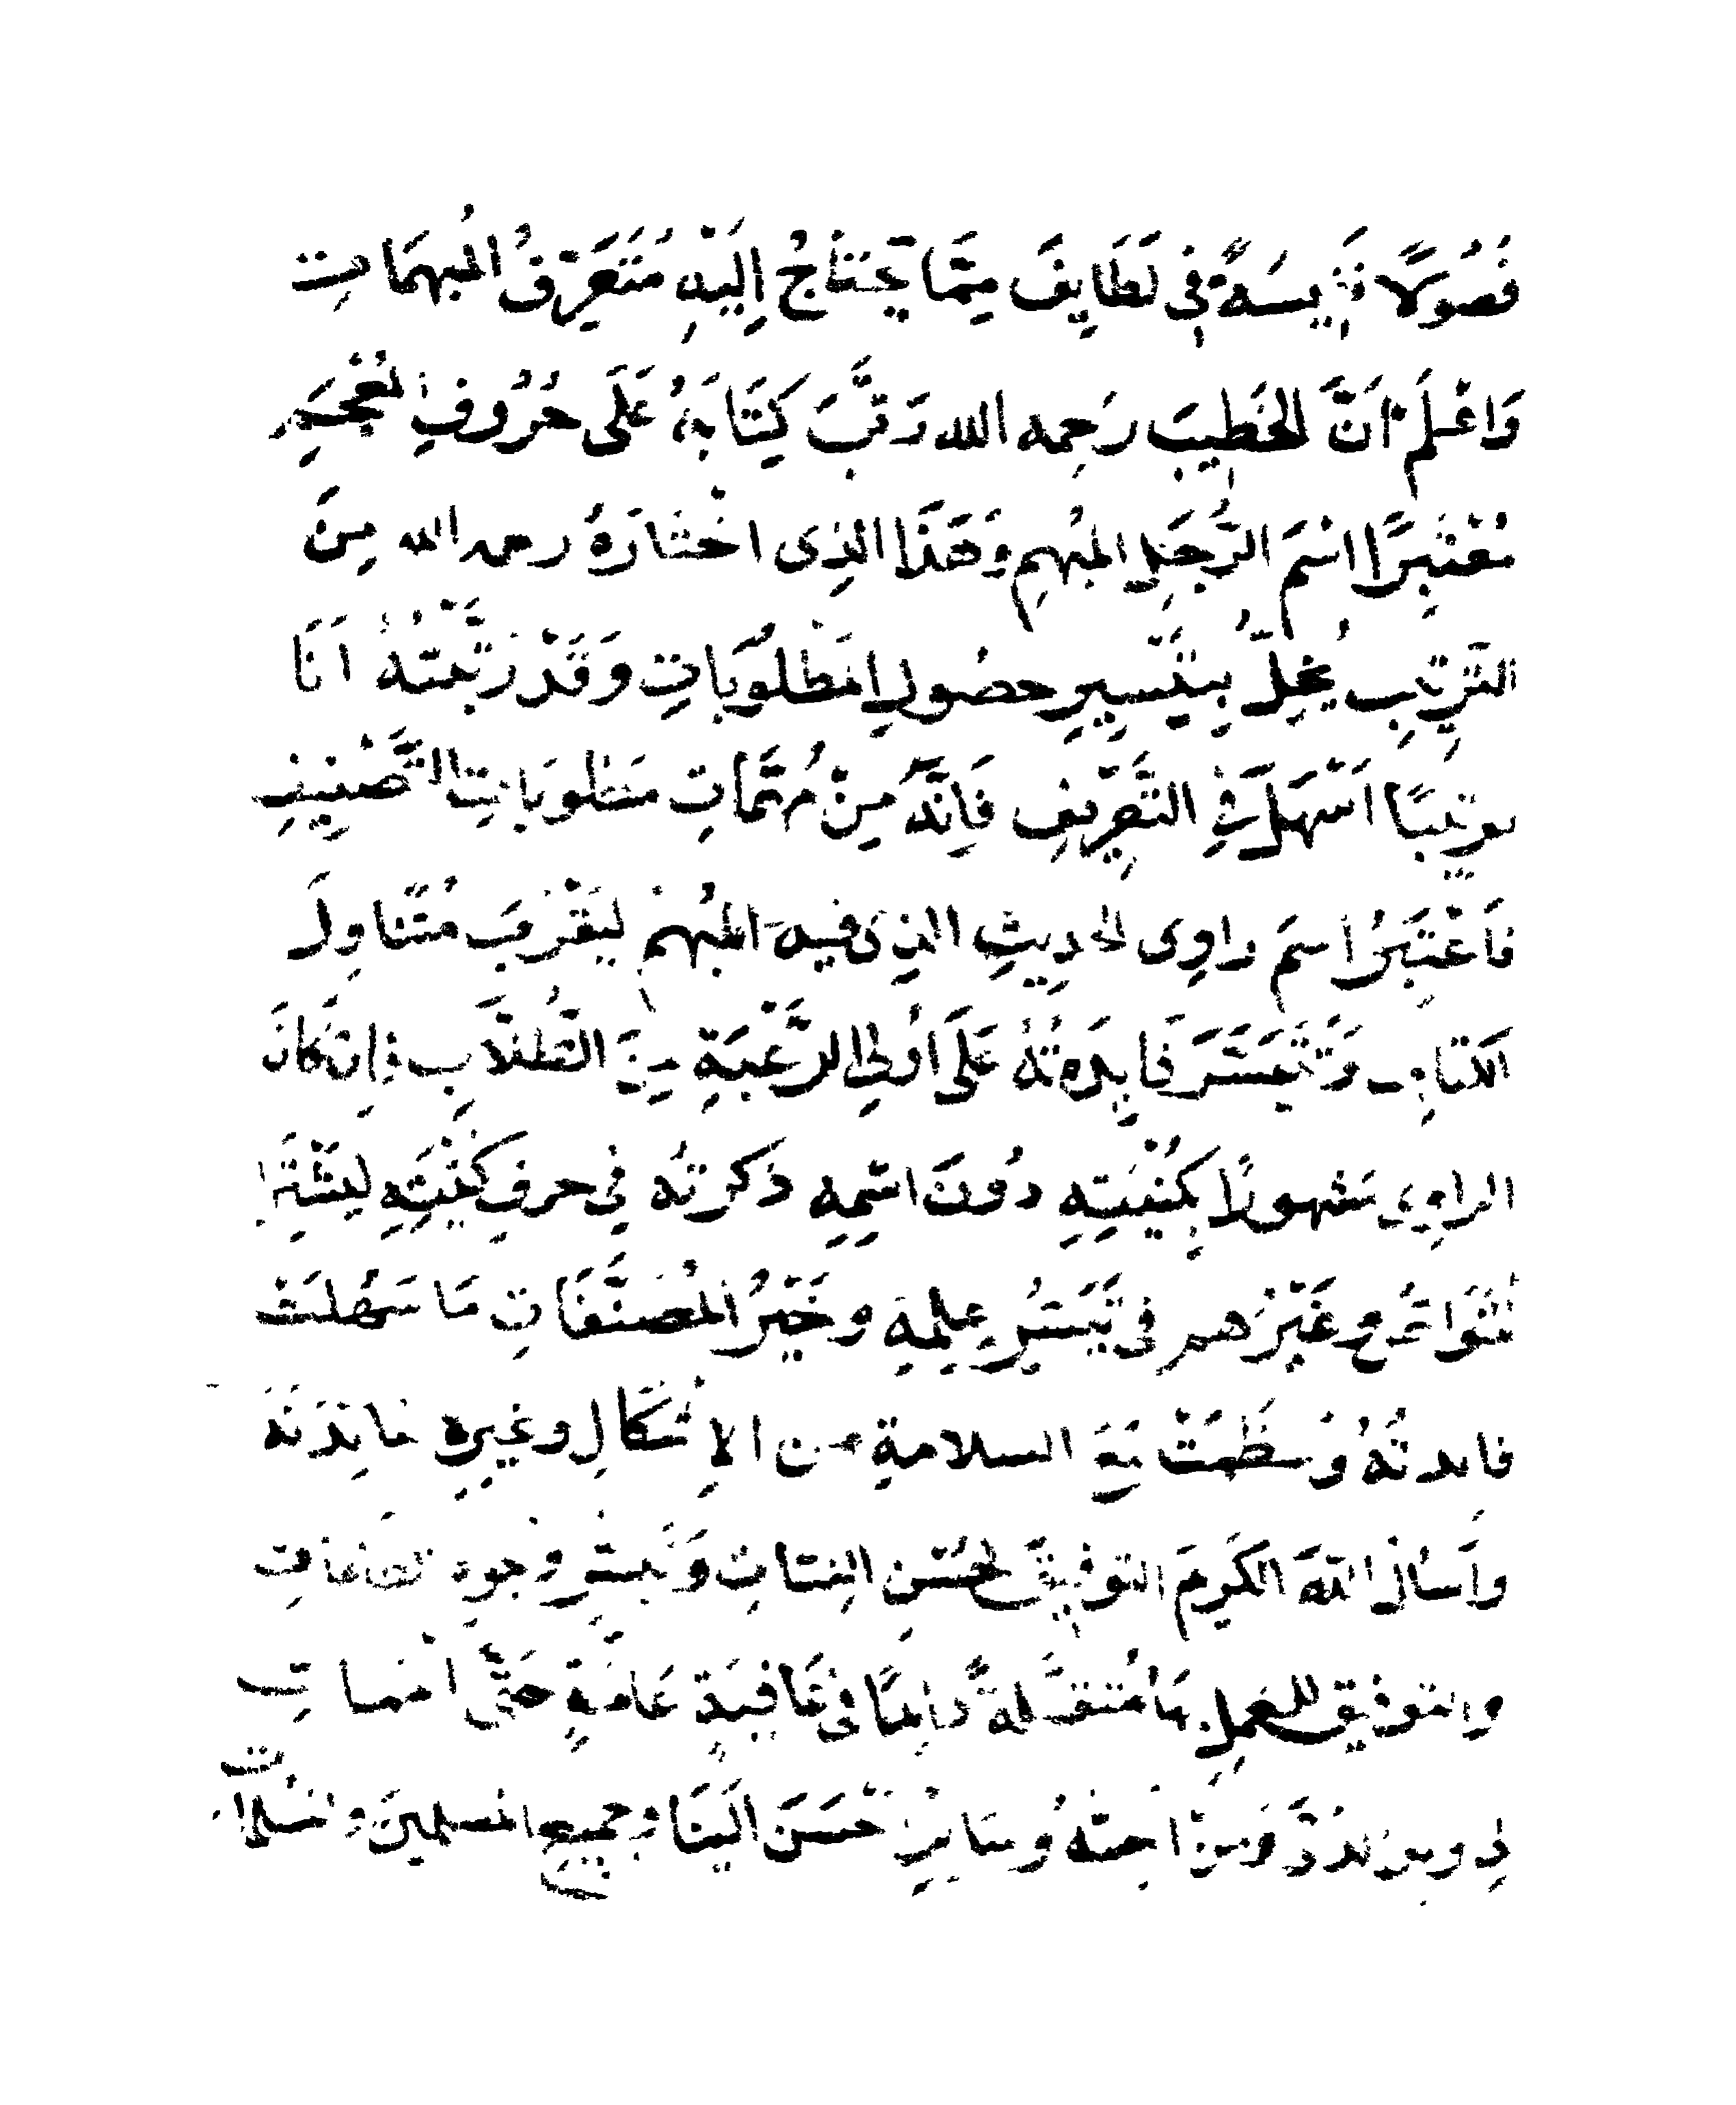 فُصُولًا نَفِيسَةً فِى لَطَايِفَ مِمَّا يَحْتَاجُ إِلَيْهِ مُتَعَرِّفُ الْمُبهَمَاتِ
وَاعْلَمْ أَنَّ الخَطِيبَ رَحِمه الله رَتَّبَ كِتَابَهُ عَلَى حُرُوفِ المُعْجَمِ
مُعْتَبِرًا اسْمَ الرَّجُلِ المُبْهمِ وَهَذَا الذِى اخْتَارَهُ رحمه الله مِنَ
التَّرتيبِ يُخِلُّ بِتَيْسِيرِ حصُولِ المَطْلُوبَاتِ وَقَدْ رَتَّبْتُهُ أَنَا
ترتيبًا أَسْهَلَ فِي التَّعرِيفِ فَإِنَّهُ مِنْ مُهِمَّاتِ مَطلوبَاتِ التَّصْنِيفِ
فَأَعْتَبِرُ اسمَ رَاوِى الحدِيثِ الذِى فيه المُبْهَمُ ليَقْرُبَ مُتَنَاوِلَ
الكتابِ وَتَتَيَسَّرَ فَايِدَتُهُ عَلَى أُولِي الرَّغْبَةِ مِنَ الطُّلَّابِ فإِن كَانَ
الراوِى مَشهورًا بِكُنْيَتِهِ دُونَ اسْمِهِ ذكرتُه فِي حرفِ كُنْيَتِهِ لِيَشْتَرِكَ
وغَيْرُهم فى تَيَسُّرِ عِلمِهِ وخَيْرُ المُصَنَّفَاتِ مَا سَهُلَتْ
فايدتُهُ وَعَظُمَتْ مَعَ السلامةِ من الإِشْكَالِ وغيرِهِ عَائِدَتُهُ
وأَسْأَلُ اللَّهَ الكَرِيمَ التوفِيقَ لحُسْنِ النِّيَّاتِ وَتَيَسُّرِ وُجوهِ الطاعَاتِ
والتوفيق للعَمِلِ بهَا مُتَقَبَّلَةً دَائِمًا فى عَافِيَةٍ عَامَّةٍ حَتَّى المَمَاتِ
لِى ولِوَالِدَىَّ وَمَنْ أُحِبُّهُ وسَايرِ مَنْ أَحْسَنَ الَيْنَا وجميعِ المسلمِينَ والمُسْلمات